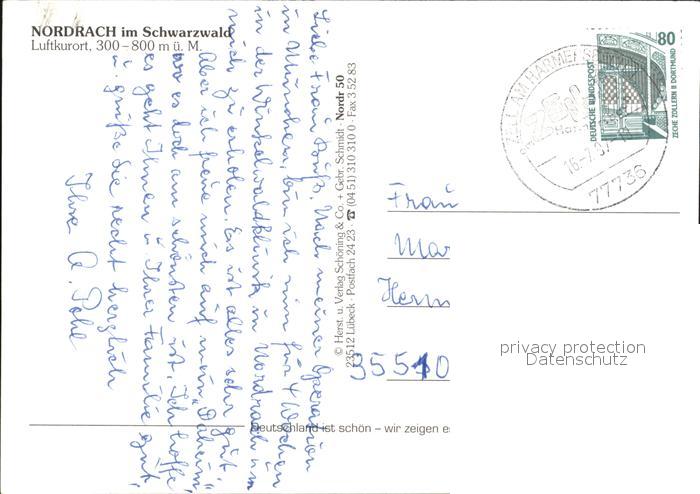 NORDRACH im Schwarzwald
Luftkurort, 300–800 m ü. M.
Liebe Frau Nach meiner Operation
in München, bin ich nun für 4 Wochen
in der Winkelwaldklinik in Nordrach um
mich zu erholen. Es ist alles sehr gut.
Aber ich freue mich auf mein "Daheim",
wo es doch am schönsten ist. Ich hoffe,
es geht Ihnen u. Ihrer Familie gut
u. grüße Sie recht herzlich
Ihre A. Pohl
© Herst. u. Verlag Schöning & Co. + Gebr. Schmidt · Nordr 50
23512 Lübeck · Postfach 24 23 · ☎ (04 51) 310 310 0 · Fax 3 52 83
80
DEUTSCHE BUNDESPOST
ZECHE ZOLLERN II DORTMUND
ZELL AM HARMERSBACH
77736
Frau
Mar
Herm
35510
privacy protection
Datenschutz
Deutschland ist schön – wir zeigen es